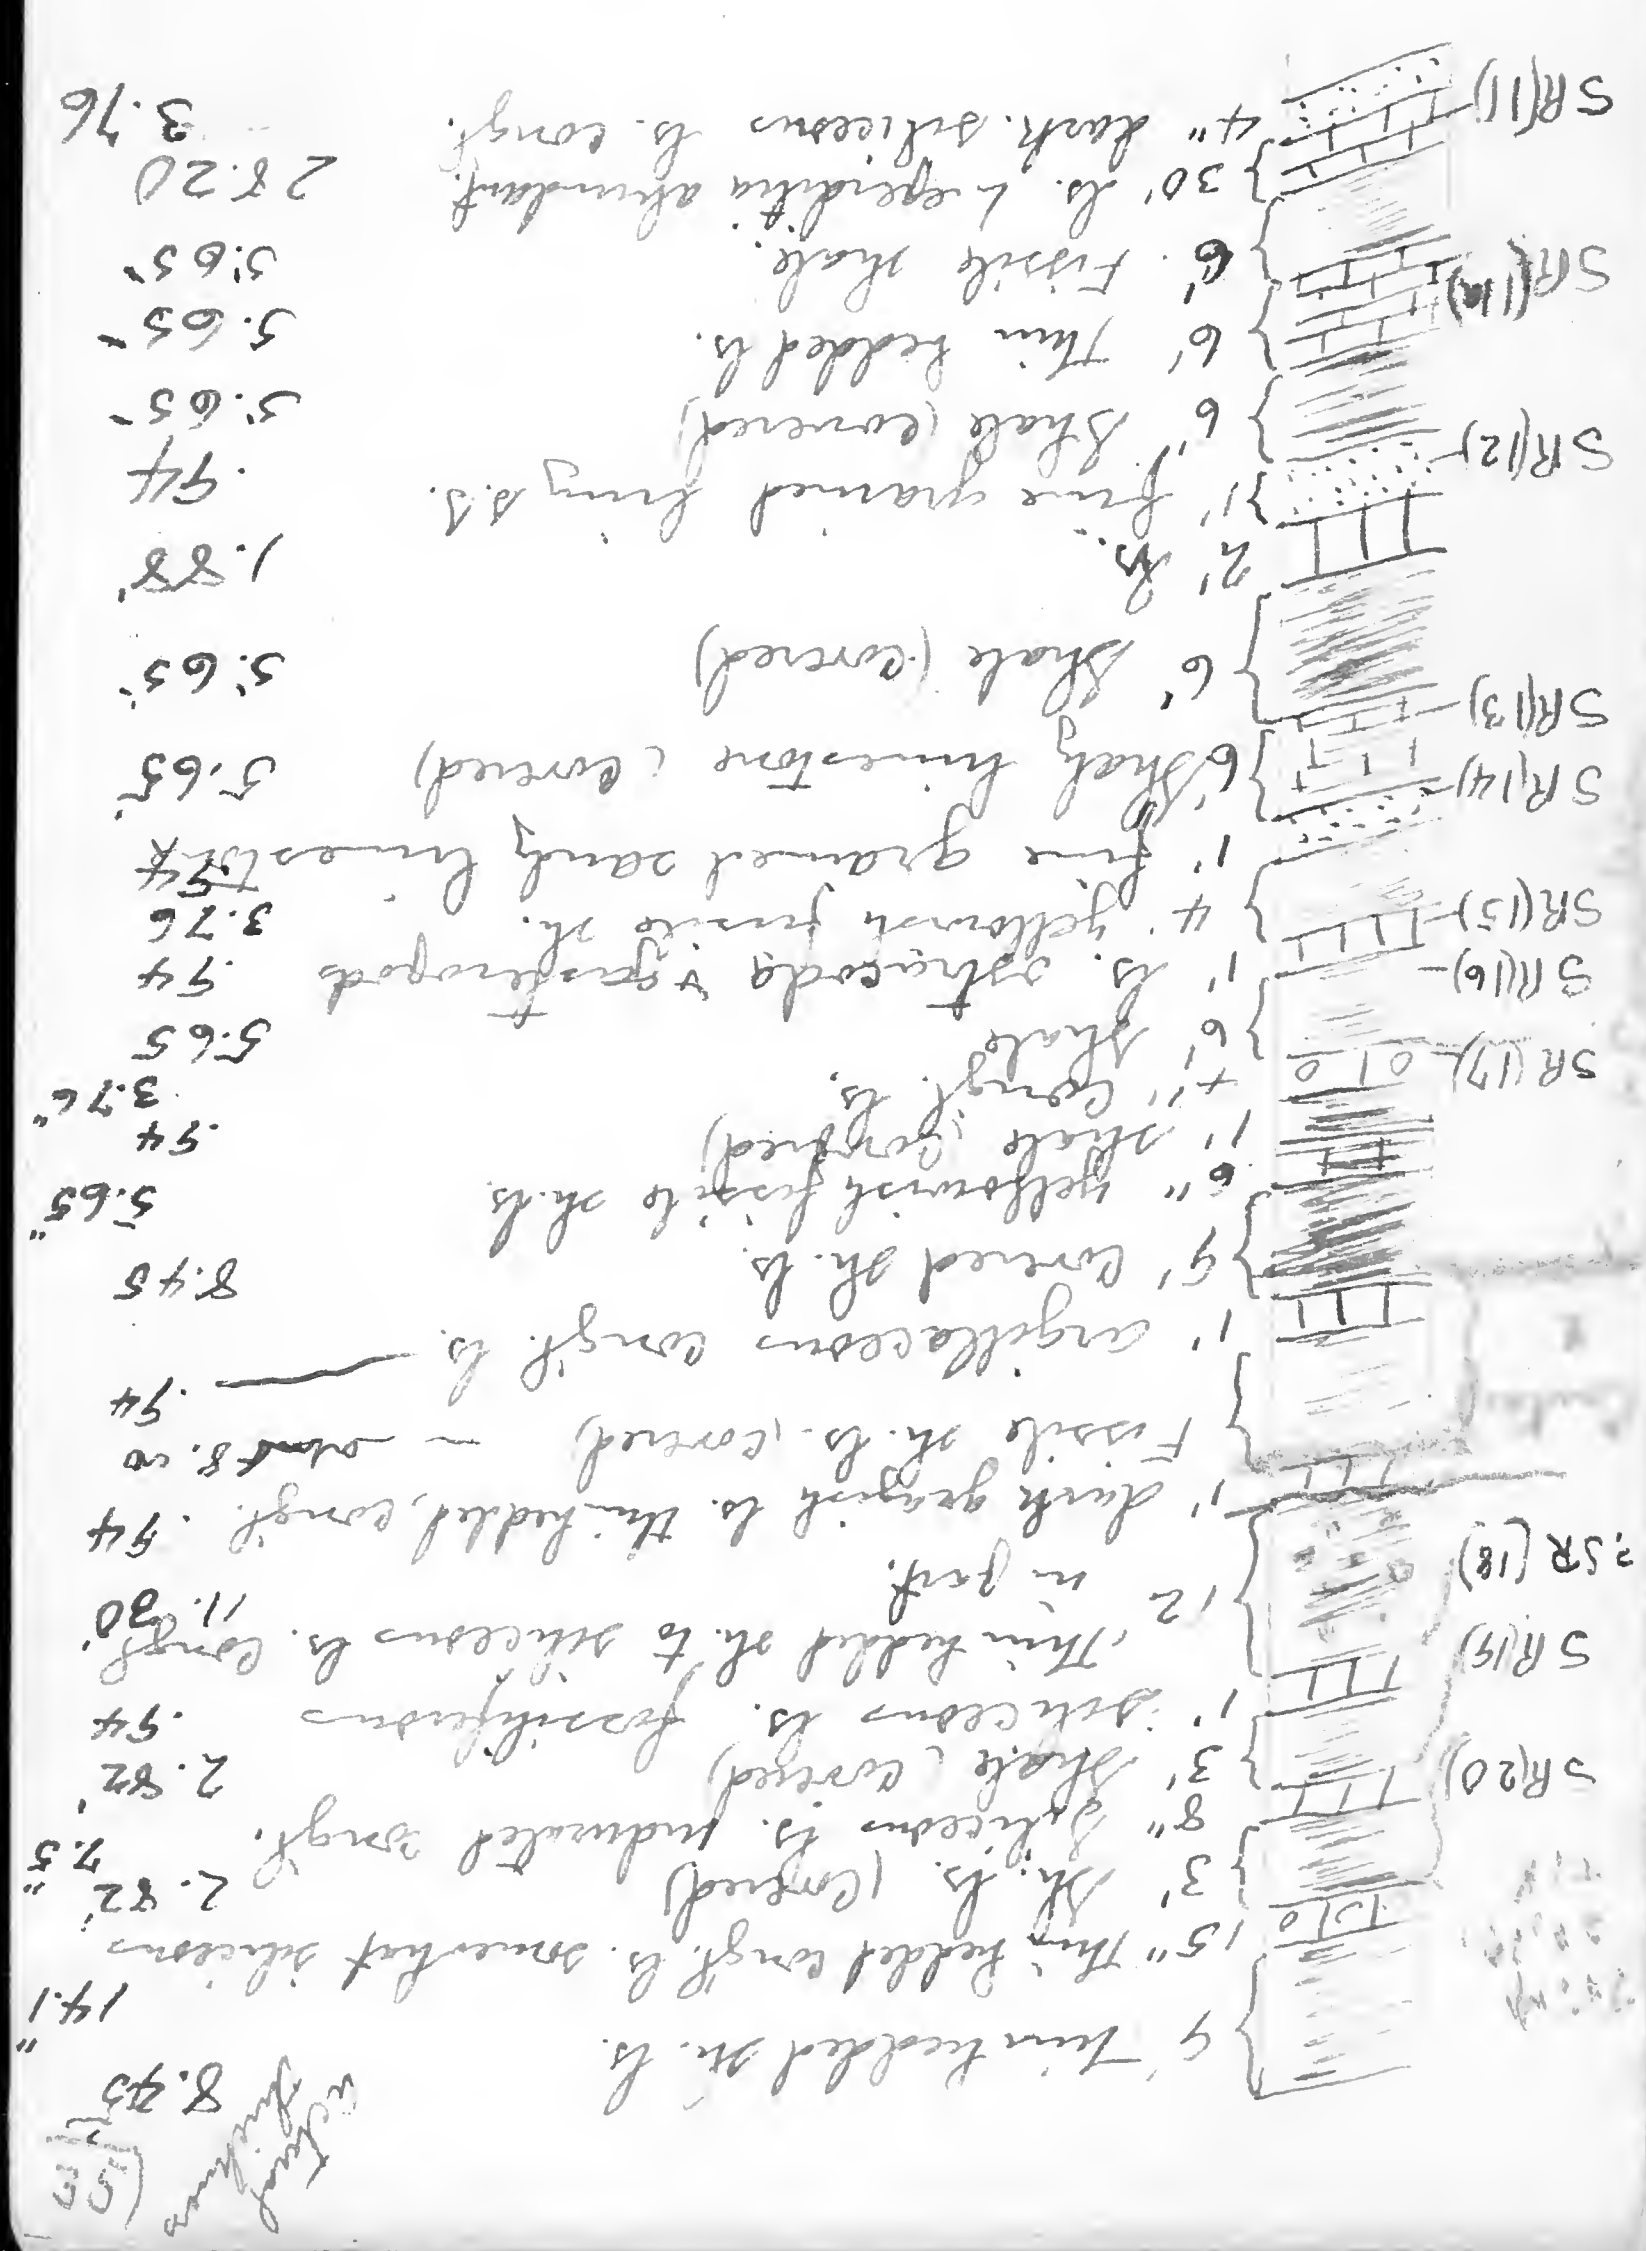 actual thickness
9' Thin bedded sh. ls. 8.45
15" Thin bedded congl. ls. somewhat siliceous 14.1"
3' Sh. ls. (Covered) 2.82'
SR(20) 8" Siliceous ls. indurated congl. 7.5"
3' Shale (covered) 2.82'
SR(19) 1' siliceous ls. fossiliferous .94
12' Thin bedded sh. to siliceous ls. congl. 11.30'
in part.
?SR(18) 1' dark grayish ls. thin bedded, congl. .94
Fissile sh. ls. (covered) — about 8.00
1' argillaceous congl. ls. — .94
9' Covered sh. ls. 8.45
6" Yellowish fissile sh. ls. 5.65"
1' shale (covered) .94
SR(17) 4" Congl. ls. 3.76"
6' Shale 5.65
SR(16) 1' ls. ostracoda & gasteropods .94
SR(15) 4' yellowish fissile sh. 3.76
SR(14) 1' fine grained sandy limestone .94
6' Shaly limestone (Covered) 5.65'
SR(13) 6' Shale (covered) 5.65'
2' ls. 1.88'
SR(12) 1' fine grained limy s.s. .94
6' Shale (covered) 5.65'
6' Thin bedded ls. 5.65'
SR(11a) 6' Fissile shale. 5.65'
30' ls. Leperditia abundant. 28.20
SR(11) 4" dark. siliceous ls. congl. 3.76